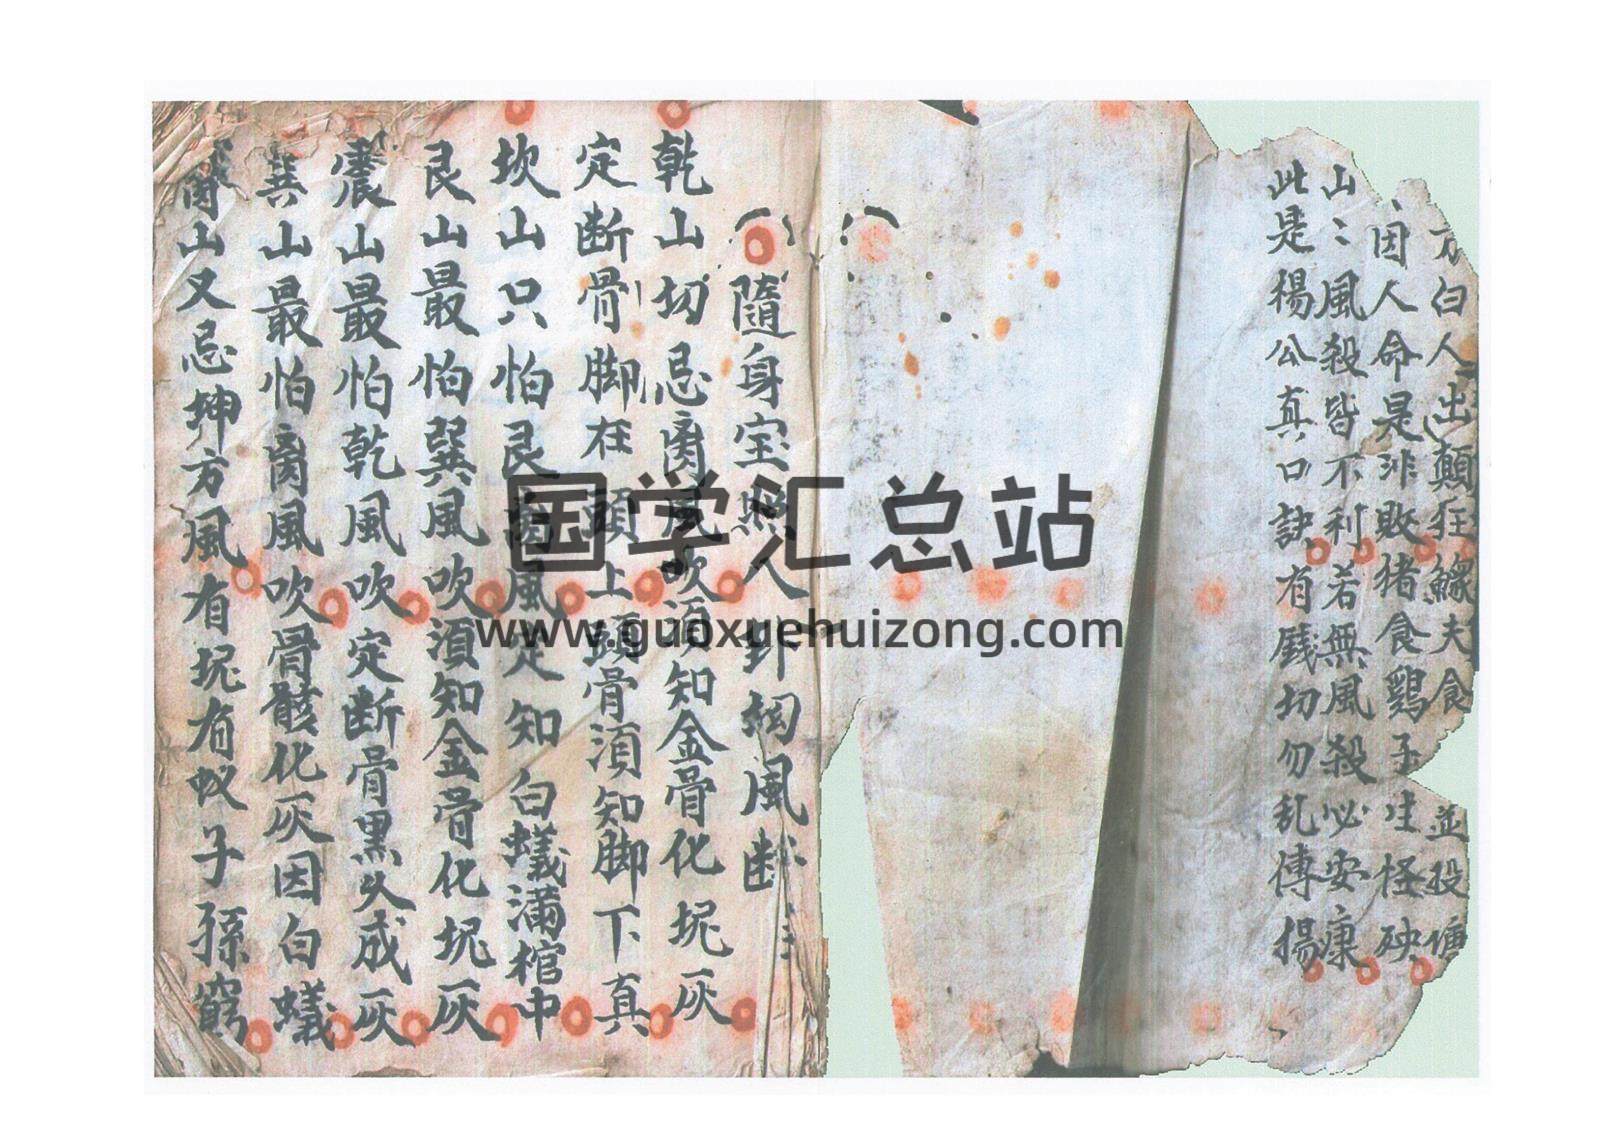 方白人出顛狂鰥夫食
並投塘
因人命是非敗猪食鷄子生怪殃
山〻風殺皆不利若無風殺必安康
此是楊公真口訣有錢切勿乱傳揚
隨身宝照人卦例風断
乾山切忌离風吹須知金骨化坭灰
定断骨脚在頭上頭骨須知脚下真
坎山只怕艮离風定知白蟻满棺中
艮山最怕巽風吹須知金骨化坭灰
震山最怕乾風吹定断骨黑火成灰
巽山最怕离風吹骨骸化灰因白蟻
离山又忌坤方風有坭有蚁子孫窮
国学汇总站
www.guoxuehuizong.com